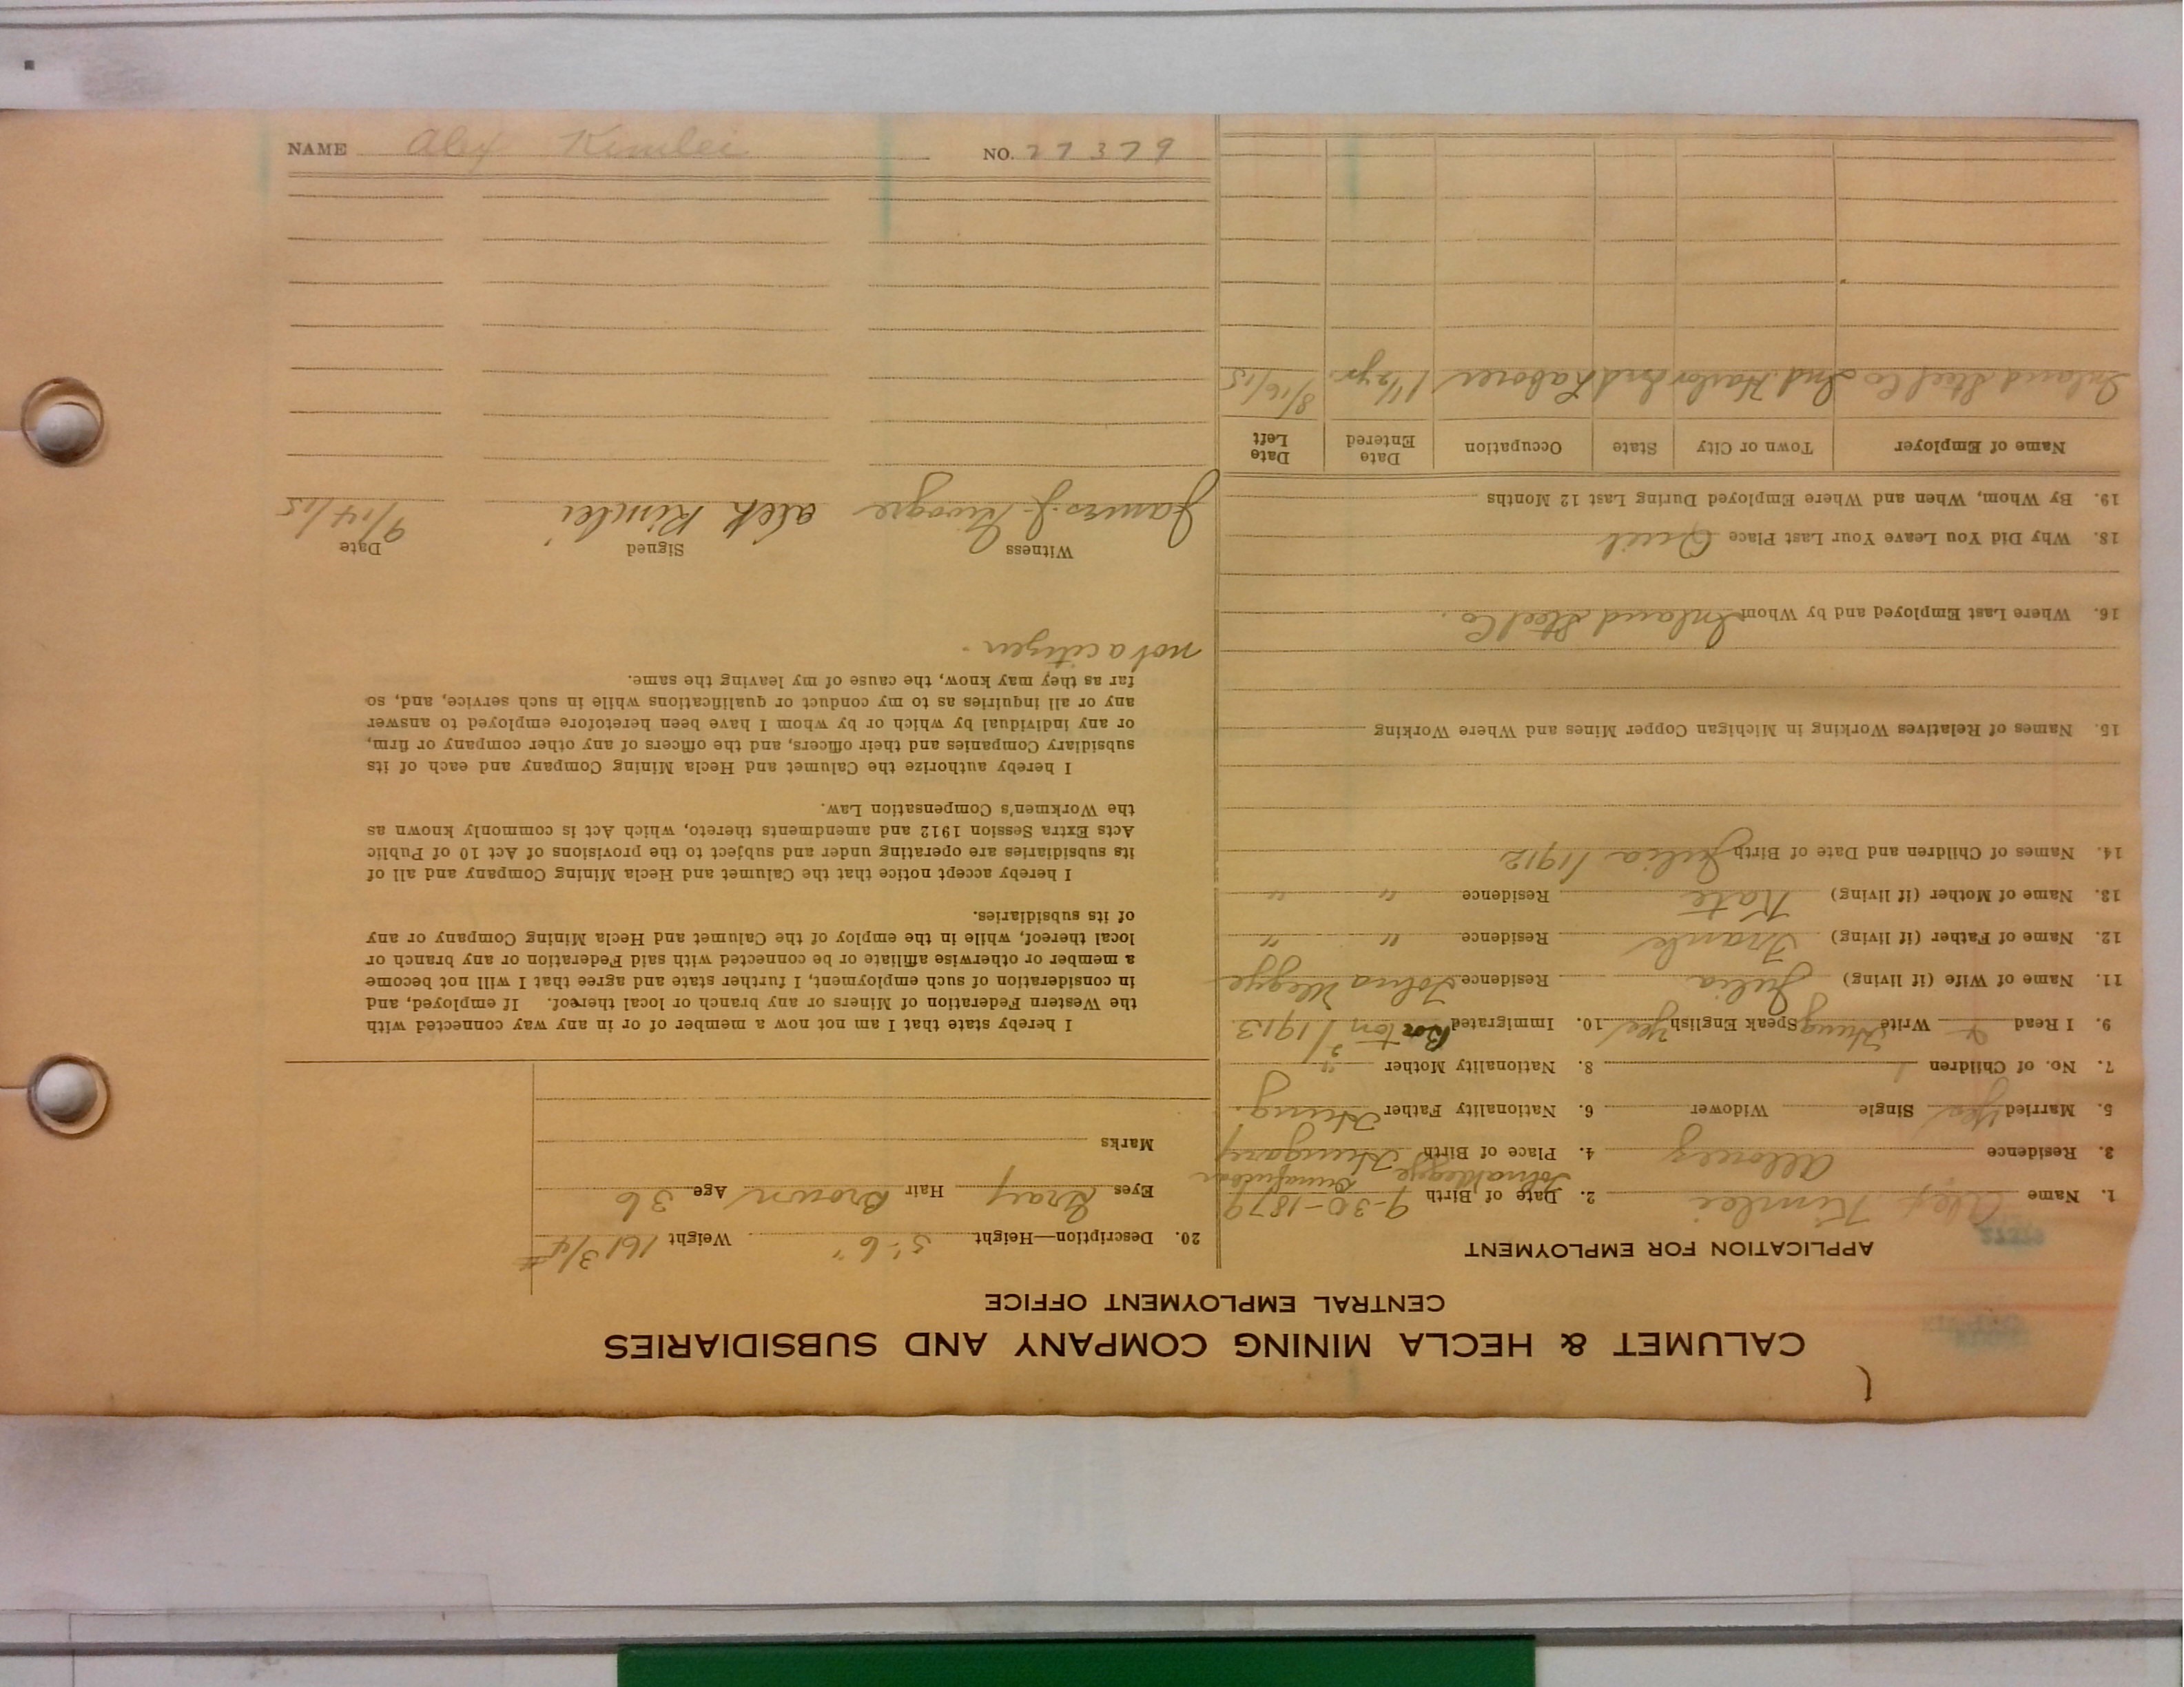 CALUMET & HECLA MINING COMPANY AND SUBSIDIARIES
CENTRAL EMPLOYMENT OFFICE
APPLICATION FOR EMPLOYMENT
1. Name Alex Kimlei 2. Date of Birth 9-30-1879
3. Residence Allouez 4. Place of Birth Hungary
5. Married Yes Single Widower 6. Nationality Father Hung.
7. No. of Children 1 8. Nationality Mother "
9. I Read & Write Hung Speak English Yes 10. Immigrated 1913
11. Name of Wife (if living) Julia Residence
12. Name of Father (if living) Frank Residence " "
13. Name of Mother (if living) Kate Residence " "
14. Names of Children and Date of Birth Julia 1912
15. Names of Relatives Working in Michigan Copper Mines and Where Working
16. Where Last Employed and by Whom Inland Steel Co.
18. Why Did You Leave Your Last Place Quit
19. By Whom, When and Where Employed During Last 12 Months
Name of Employer Town or City State Occupation Date Entered Date Left
Inland Steel Co Ind. Harbor Ind Laborer 1 1/2 yr. 8/16/15
20. Description—Height 5'-6" Weight 161 3/4 #
Eyes Gray Hair Brown Age 36
Marks
I hereby state that I am not now a member of or in any way connected with
the Western Federation of Miners or any branch or local thereof. If employed, and
in consideration of such employment, I further state and agree that I will not become
a member or otherwise affiliate or be connected with said Federation or any branch or
local thereof, while in the employ of the Calumet and Hecla Mining Company or any
of its subsidiaries.
I hereby accept notice that the Calumet and Hecla Mining Company and all of
its subsidiaries are operating under and subject to the provisions of Act 10 of Public
Acts Extra Session 1912 and amendments thereto, which Act is commonly known as
the Workmen's Compensation Law.
I hereby authorize the Calumet and Hecla Mining Company and each of its
subsidiary Companies and their officers, and the officers of any other company or firm,
or any individual by which or by whom I have been heretofore employed to answer
any or all inquiries as to my conduct or qualifications while in such service, and, so
far as they may know, the cause of my leaving the same.
not a citizen.
Witness Signed Date
James J. alek Kimlei 9/14/15
NAME Alex Kimlei NO. 27379